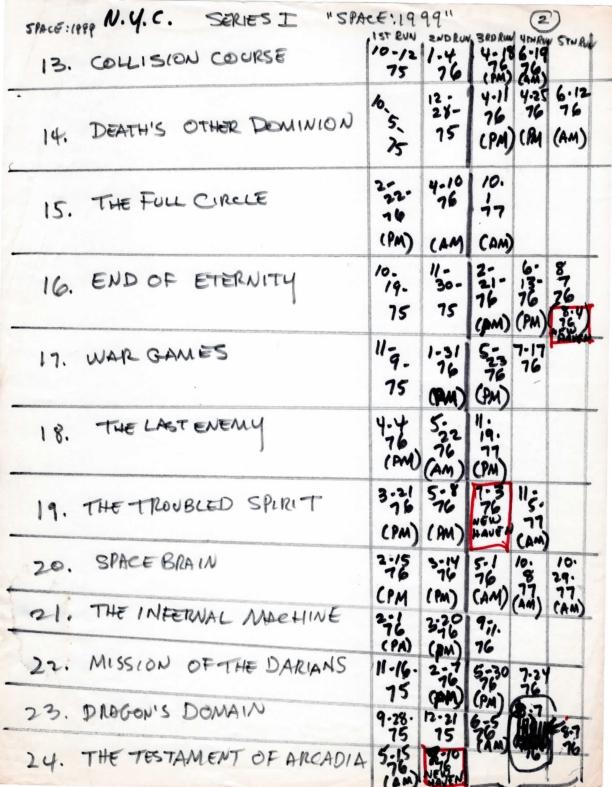 SPACE:1999 N.Y.C. SERIES I "SPACE:1999" 2
1ST RUN 2ND RUN 3RD RUN 4TH RUN 5TH RUN
13. COLLISION COURSE 10-12 75 1-4 76 4-18 76 (PM) 6-19 76 (AM)
14. DEATH'S OTHER DOMINION 10-5-75 12-28-75 4-11 76 (PM) 4-25 76 (PM 6-12 76 (AM)
15. THE FULL CIRCLE 2-22-76 (PM) 4-10 76 (AM) 10-1 77 (AM)
16. END OF ETERNITY 10-19-75 11-30-75 2-21-76 6-13-76 (PM) 8 7 76
8-4 76 HAVEN
17. WAR GAMES 11-9-75 1-31 76 5-23 76 (PM) 7-17 76
18. THE LAST ENEMY 4-4 76 5-22 76 (AM) 11-19-77 (PM)
19. THE TROUBLED SPIRIT 3-21 76 (PM) 5-8 76 7-3 76 NEW HAVEN 11-5-77 (AM)
20. SPACE BRAIN 2-15 76 (PM 3-14 76 (PM) 5-1 76 (AM) 10-8 77 (AM) 10-29-77 (AM)
21. THE INFERNAL MACHINE 2-1 76 3-20 76 9-11-76
22. MISSION OF THE DARIANS 11-16-75 2-7 76 5-30 76 (PM) 7-24 76
23. DRAGON'S DOMAIN 9-28-75 12-21 75 6-5 76 (AM) 76 8-7 76
24. THE TESTAMENT OF ARCADIA 5-15 76 (AM) 76 NEW HAVEN